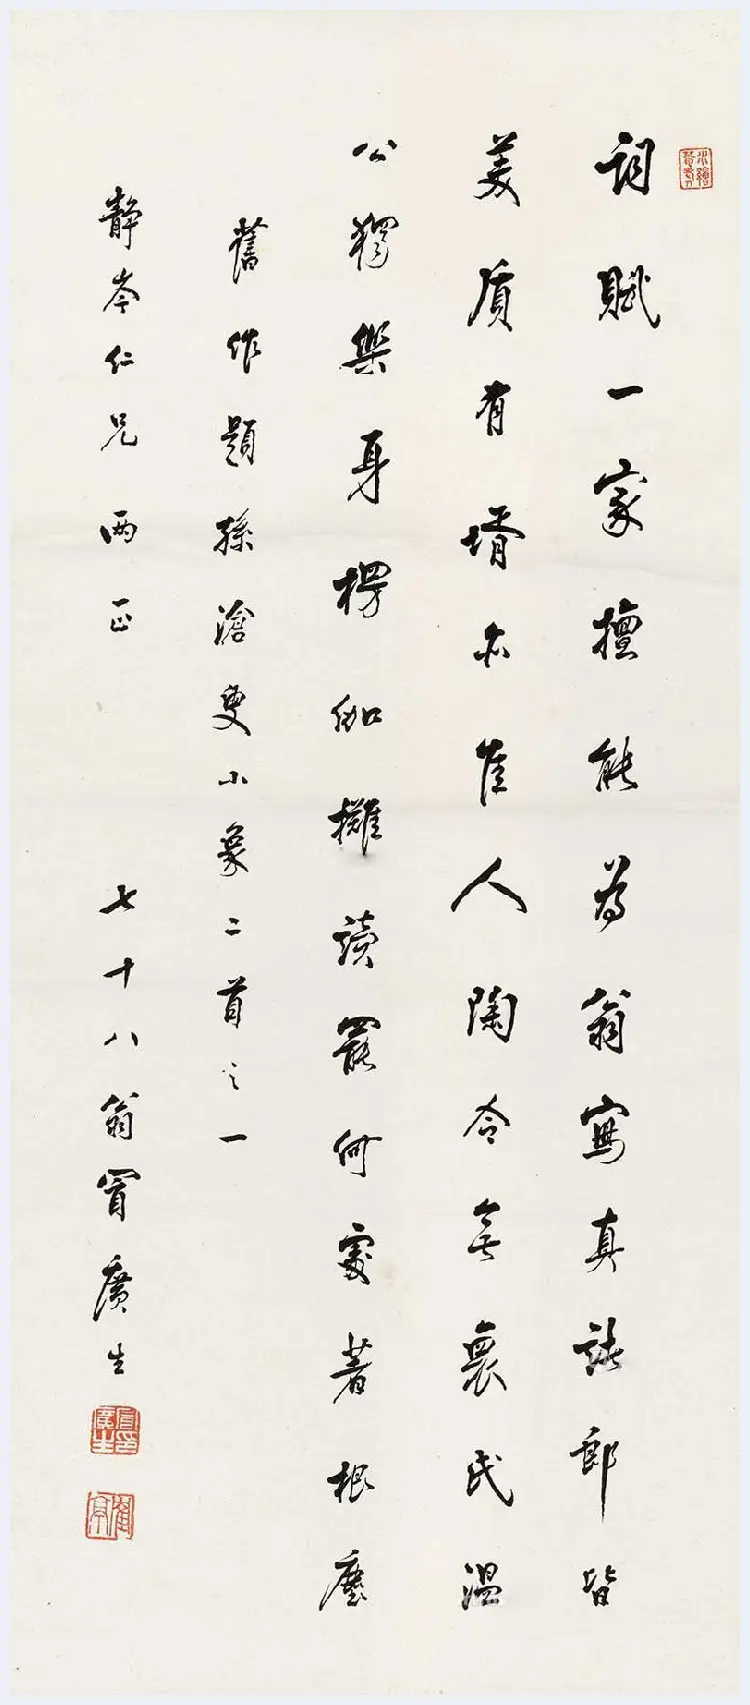 詞賦一家擅能為翁寫真諸郎皆
美質有壻亦佳人陶令無褱氏溫
公獨樂身楞伽攤讀罷何處著根塵
舊作題孫滄叟小象二首之一
靜岑仁兄兩正 七十八翁冒廣生
冒廣生印